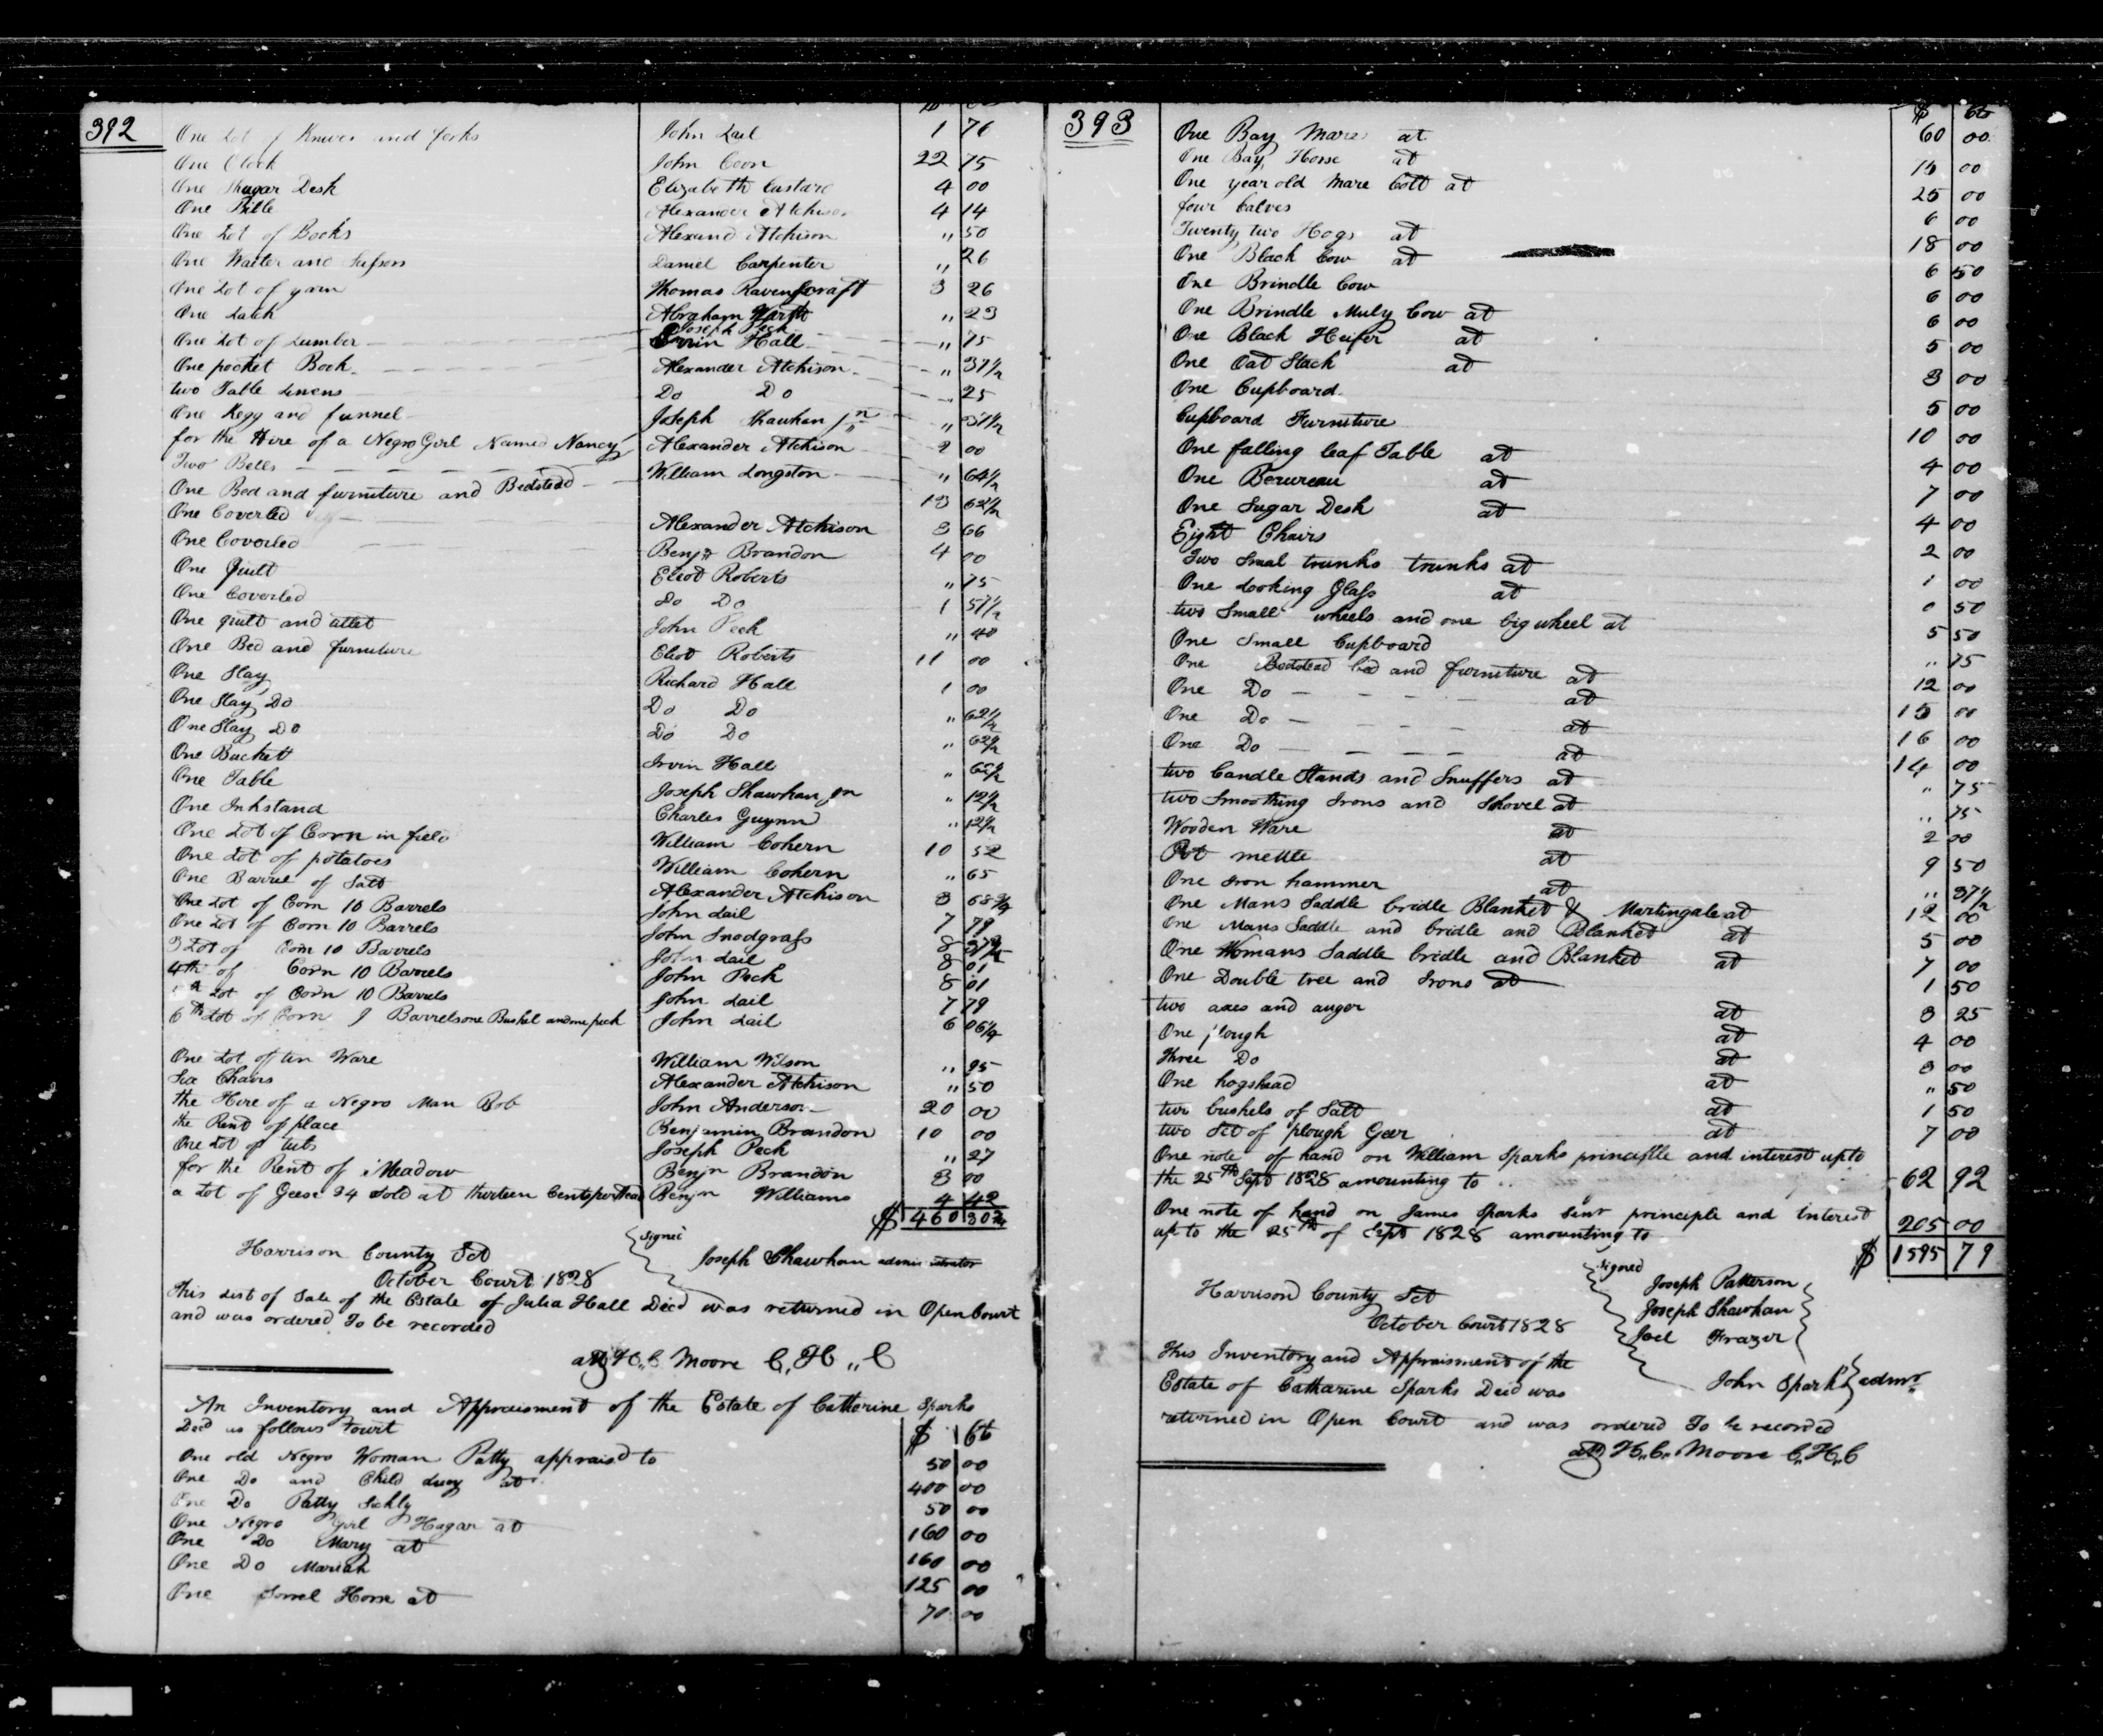 392
One Lot of Knives and forks John Lail 1 76
One Clock John Coon 22 75
One Shugar Desk Elizabeth Custard 4 00
One Bible Alexander Atchison 4 14
One Lot of Books Alexand Atchison " 50
One Waiter and Daniel Carpenter " 26
One Lot of yarn Thomas Ravenscraft 3 26
One Abraham " 23
Joseph Peck
One Lot of Lumber Irvin Hall " 75
One pocket Book Alexander Atchison " 37½
two Table Linens Do Do " 25
One Kegg and funnel Joseph Shawhan jnr " 37½
for the Hire of a Negro Girl Named Nancy Alexander Atchison 2 00
Two Bells William Longston " 64½
One Bed and furniture and Bedstead 13 62½
One Coverled Alexander Atchison 3 66
One Coverled Benjn Brandon 4 00
One Quilt Eliot Roberts " 75
One Coverled Do Do 1 57½
One quilt and John Peck " 40
One Bed and furniture Eliot Roberts 11 00
One Slay Richard Hall 1 00
One Slay Do Do Do " 62½
One Slay Do Do Do " 62½
One Buckett Irvin Hall "
One Table Joseph Shawhan jnr " 12½
One Inkstand Charles Guynn " 12½
One Lot of Corn in field William Cohern 10 52
One Lot of potatoes William Cohern " 65
One Barrel of Salt Alexander Atchison 3 68¾
One Lot of Corn 10 Barrels John Lail 7 79
One Lot of Corn 10 Barrels John Snodgrass 8
3 Lot of Corn 10 Barrels John Lail 8 01
4th of Corn 10 Barrels John Peck 8 01
Lot of Corn 10 Barrels John Lail 7 79
6th Lot of Corn 9 Barrels one Bushel and one peck John Lail 6 06¼
One Lot of tin Ware William Wilson " 95
Six Chairs Alexander Atchison " 50
the Hire of a Negro Man Bob John Anderson 20 00
the Rent of place Benjamin Brandon 10 00
One Lot of tubs Joseph Peck " 27
for the Rent of Meadow Benjn Brandon 3 00
a Lot of Geese 34 Sold at thirteen Cents per Head Benjn Williams 4 42
$ 460 30¾
Harrison County Sct
October Court 1828
Signed
Joseph Shawhan administrator
this List of Sale of the Estate of Julia Hall Decd was returned in Open Court
and was ordered To be recorded
att H. C. Moore C,,H,,C
An Inventory and Appraisment of the Estate of Catherine Sparks
Decd as follows towit $ cts
One old Negro Woman Patty appraisd to 50 00
One Do and Child Lucy at 400 00
One Do Patty Sickly 50 00
One Negro Girl Hagar at 160 00
One Do Mary at 160 00
One Do Mariah 125 00
One Sorrel Horse at 70 00
393 $ cts
One Bay Mare at 60 00
One Bay Horse at 15 00
One year old Mare Colt at 25 00
four Calves 6 00
Twenty two Hogs at 18 00
One Black Cow at 6 50
One Brindle Cow 6 00
One Brindle Muly Cow at 6 00
One Black Heifer at 5 00
One Oat Stack at 3 00
One Cupboard 5 00
Cupboard Furniture 10 00
One falling leaf Table at 4 00
One Berureau at 7 00
One Sugar Desk at 4 00
Eight Chairs 2 00
Two Smal trunks trunks at 1 00
One Looking Glass at 0 50
two Small wheels and one big wheel at 5 50
One Small Cupboard " 75
One Bedstead bed and furniture at 12 00
One Do at 15 00
One Do at 16 00
One Do at 14 00
two Candle Stands and Snuffers at " 75
two Smoothing Irons and Shovel at " 75
Wooden Ware at 2 00
Pot mettle at 9 50
One Iron hammer at " 37½
One Mans Saddle bridle Blanket & Martingale at 12 00
One Mans Saddle and bridle and Blanket at 5 00
One Womans Saddle bridle and Blanket at 7 00
One Double tree and Irons at 1 50
two axes and auger at 3 25
One plough at 4 00
three Do at 3 00
One hogshead at " 50
two bushels of Salt at 1 50
two Set of plough Geer at 7 00
One note of hand on William Sparks principlle and interest upto
the 25th Sept 1828 amounting to 62 92
One note of hand on James Sparks Senr principle and interest
up to the 25th of Sept 1828 amounting to 205 00
$ 1595 79
Harrison County Sct
October Court 1828
Signed
Joseph Patterson
Joseph Shawhan
Joel Frazer
This Inventory and Appraisment of the
Estate of Catharine Sparks Decd was John Sparks admr
returned in Open Court and was ordered To be recorded
att H,,C,, Moore C,,H,,C